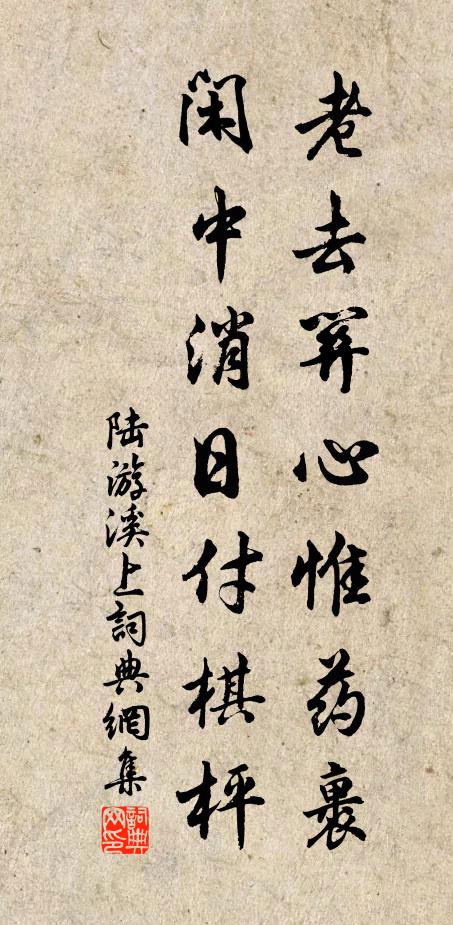 老去関心惟药裹
闲中消日付棋枰
陆游溪上詞典網集
詞典网印